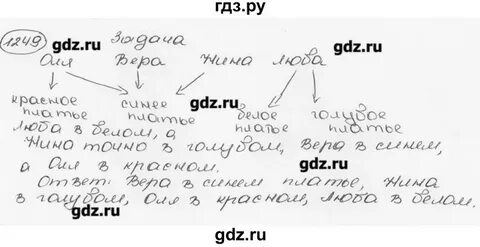 гдз.ру
1249 Задача
Оля Вера Жина Люба
красное платье синее платье белое платье голубое платье
Люба в белом, а
Жина точно в голубом, Вера в синем,
а Оля в красном.
Ответ: Вера в синем платье, Жина
в голубом, Оля в красном, Люба в белом.
gdz.ru
gdz.ru
gdz.ru
gdz.ru
gdz.ru
gdz.ru